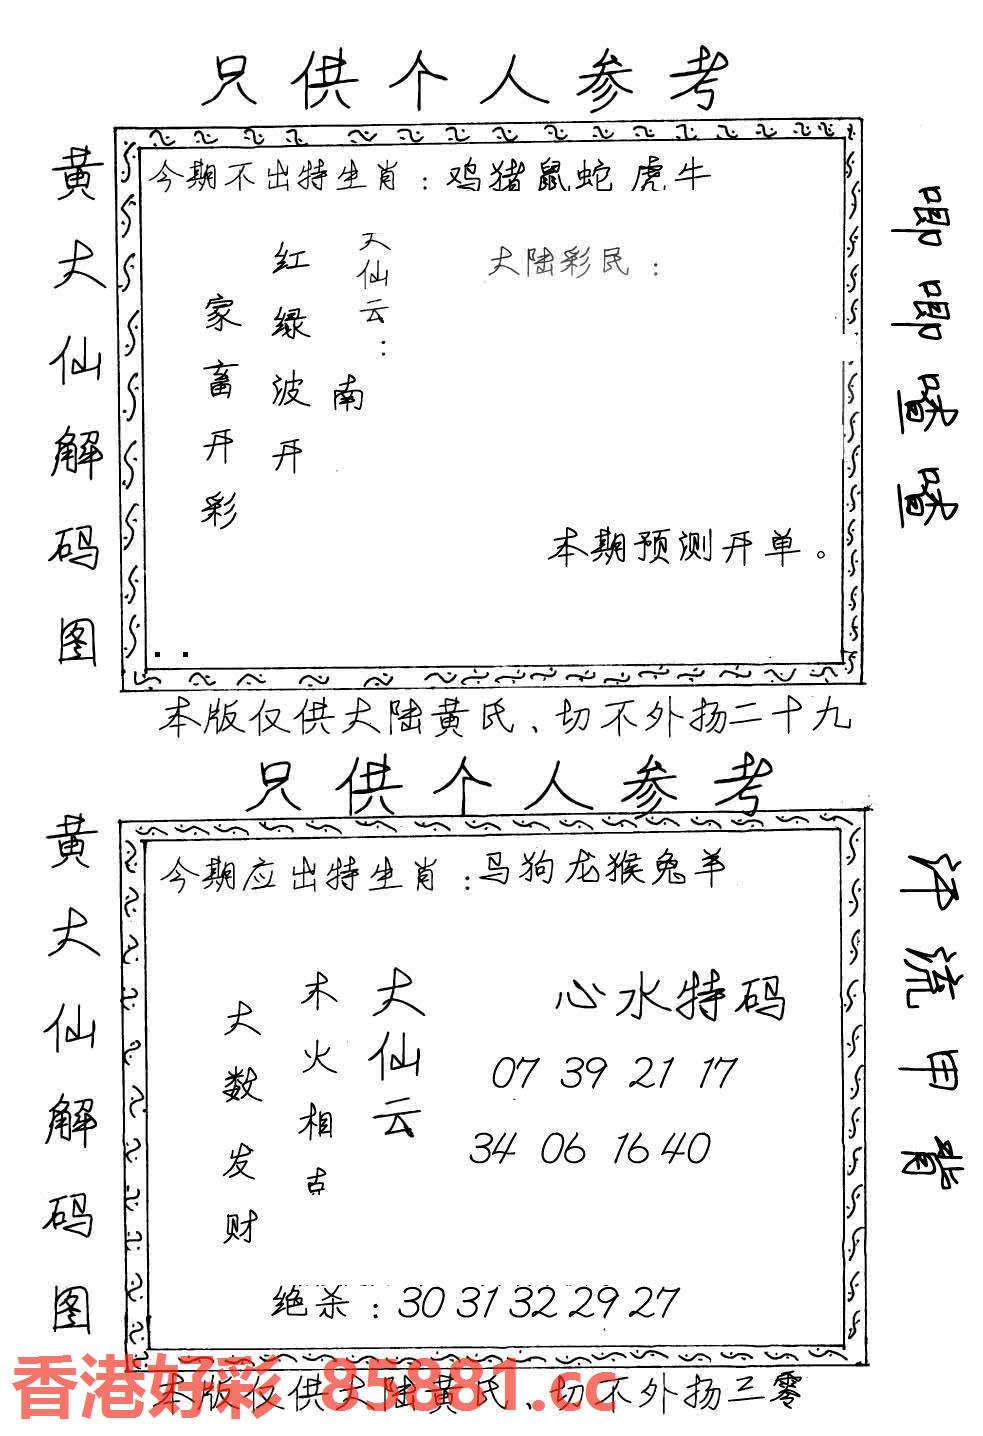 只供个人参考
黄大仙解码图
今期不出特生肖：鸡猪鼠蛇虎牛
大仙云：
南
红绿波开
家畜开彩
大陆彩民：
本期预测开单。
唧唧喳喳
本版仅供大陆黄氏、切不外扬二十九
只供个人参考
黄大仙解码图
今期应出特生肖：马狗龙猴兔羊
大仙云
木火相吉
大数发财
心水特码
07 39 21 17
34 06 16 40
绝杀：30 31 32 29 27
汗流甲背
本版仅供大陆黄氏、切不外扬三零
香港好彩 85881.cc